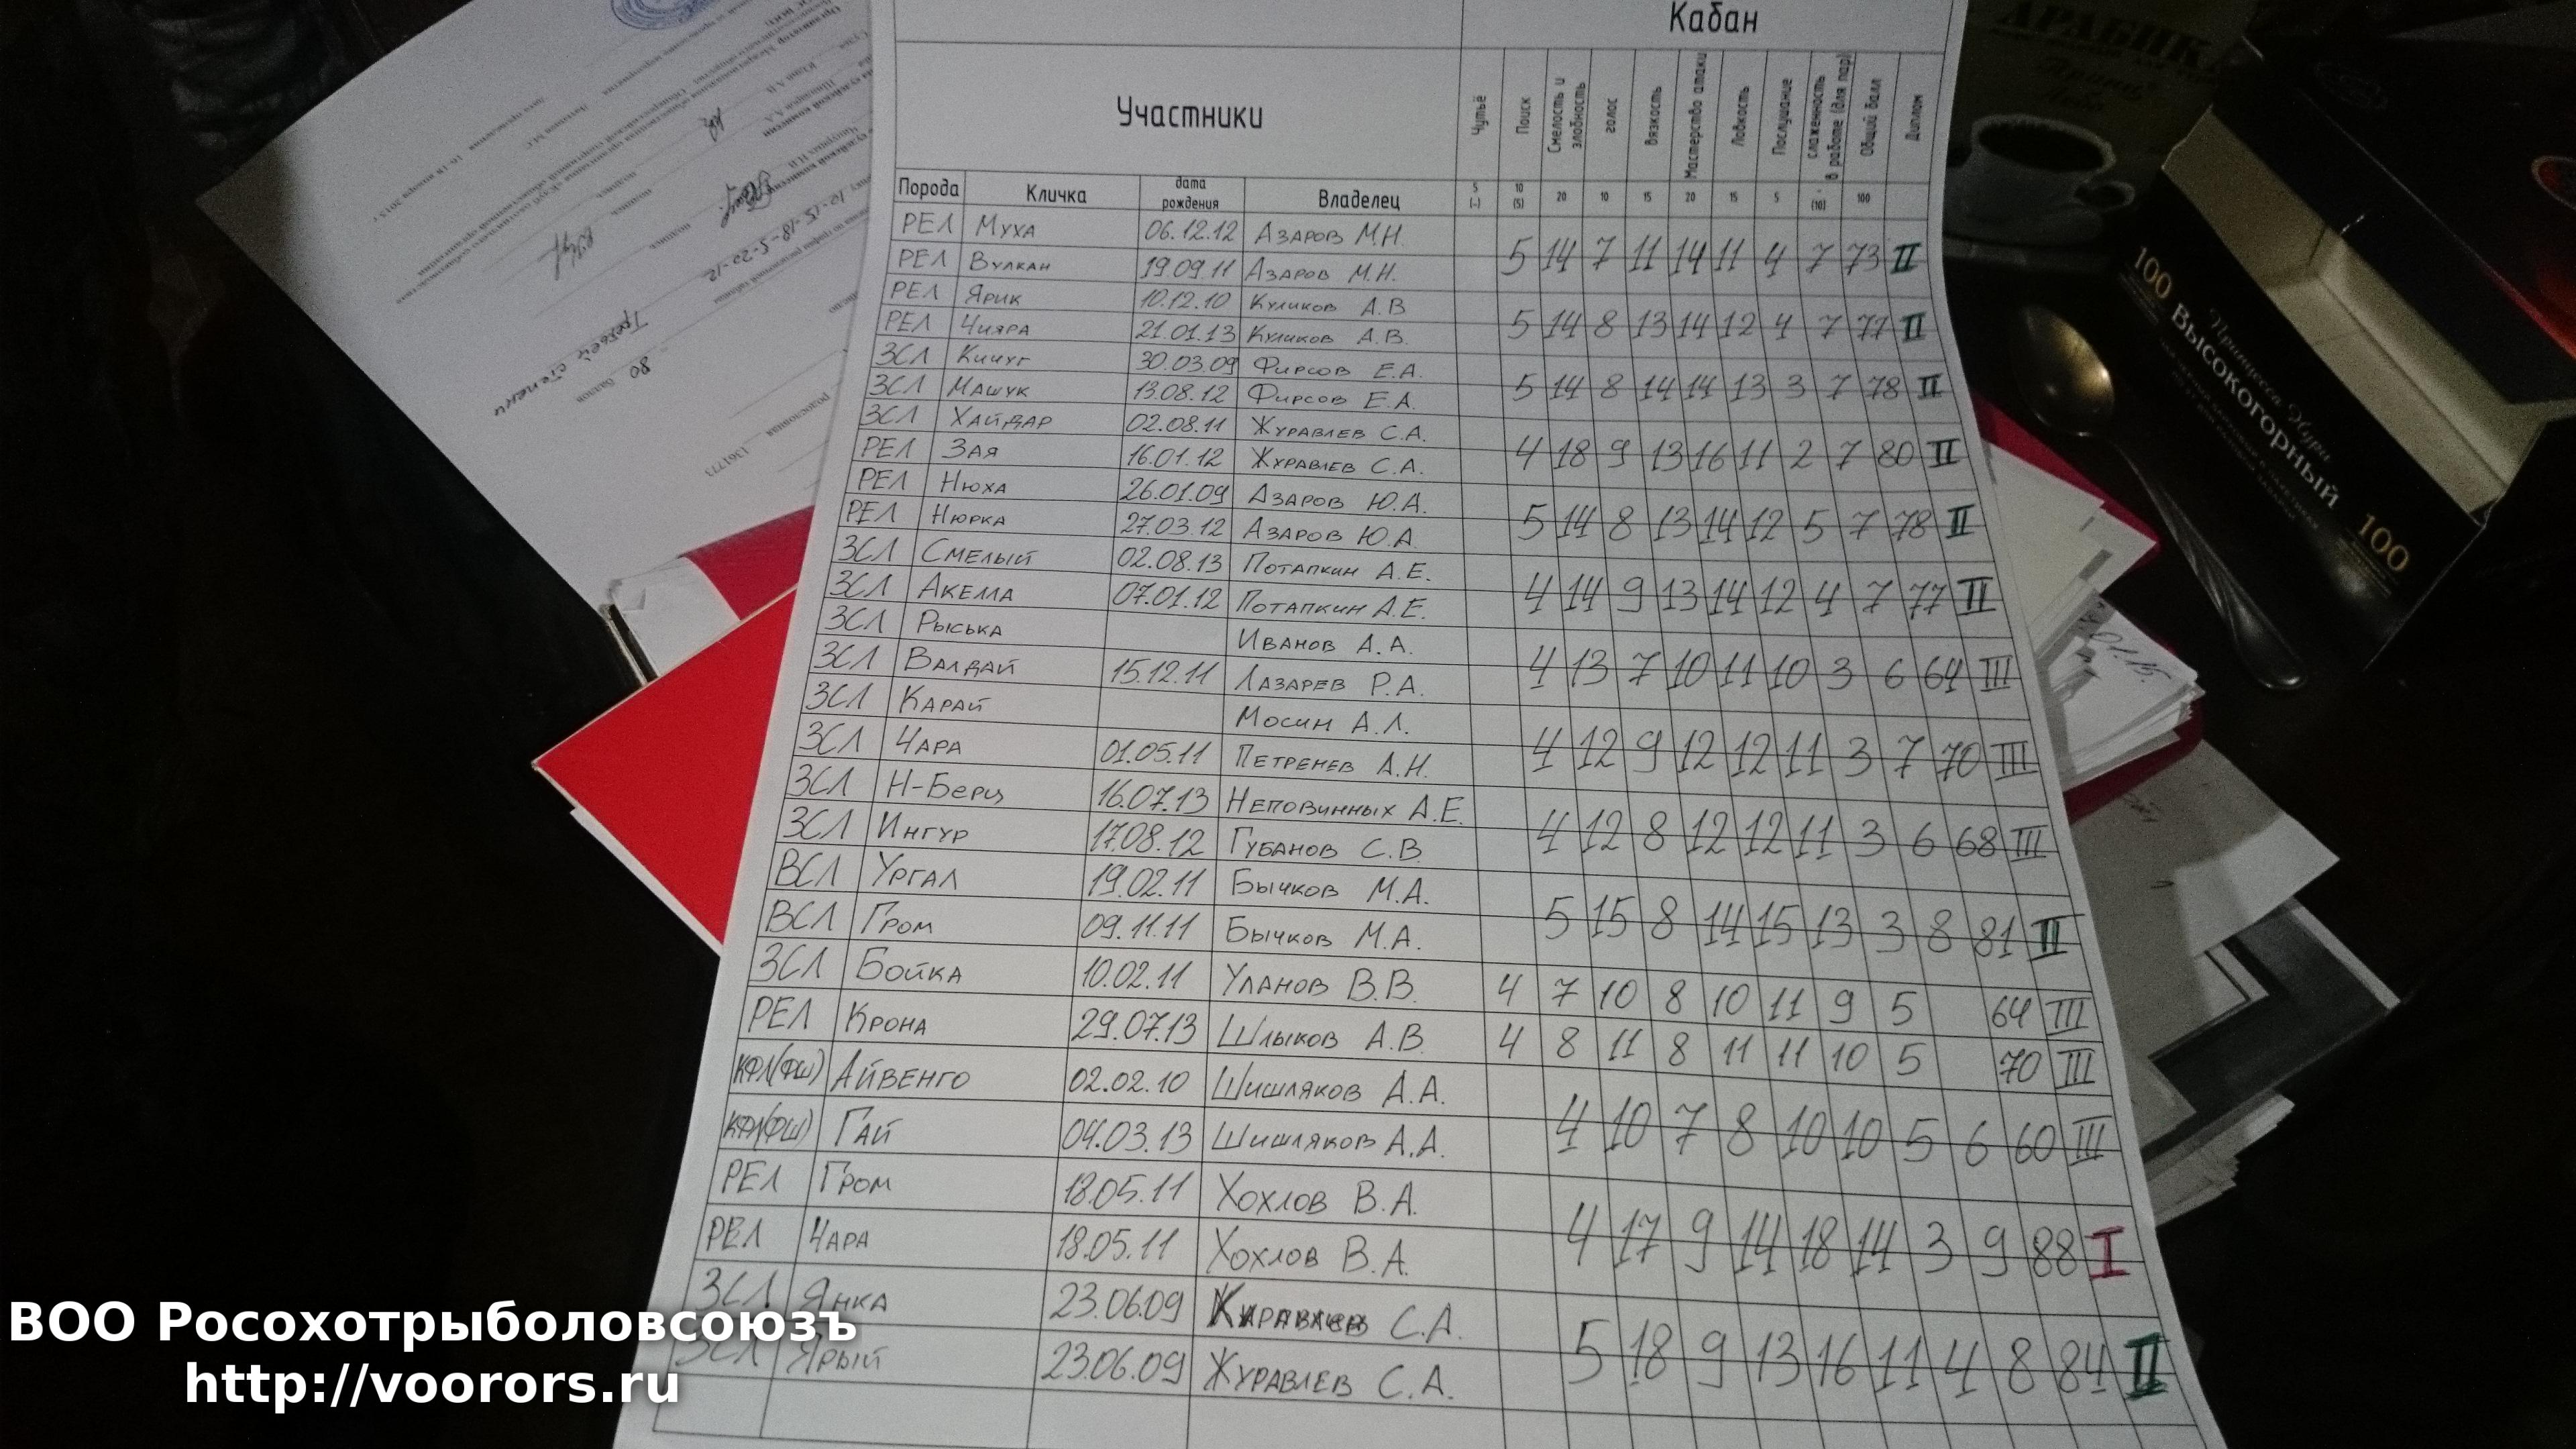 Кабан
Участники
Чутьё
Поиск
Смелость и злобность
голос
Вязкость
Мастерство атаки
Ловкость
Послушание
слаженность в работе (для пар)
Общий балл
Диплом
Порода Кличка дата рождения Владелец 5 (-) 10 (5) 20 10 15 20 15 5 - (10) 100
РЕЛ Муха 06.12.12 Азаров М.Н.
5 14 7 11 14 11 4 7 73 II
РЕЛ Вулкан 19.09.11 Азаров М.Н.
РЕЛ Ярик 10.12.10 Куликов А.В
5 14 8 13 14 12 4 7 77 II
РЕЛ Чияра 21.01.13 Куликов А.В.
ЗСЛ Кичуг 30.03.09 Фирсов Е.А.
5 14 8 14 14 13 3 7 78 II
ЗСЛ Машук 13.08.12 Фирсов Е.А.
ЗСЛ Хайдар 02.08.11 Журавлев С.А.
4 18 9 13 16 11 2 7 80 II
РЕЛ Зая 16.01.12 Журавлев С.А.
РЕЛ Нюха 26.01.09 Азаров Ю.А.
5 14 8 13 14 12 5 7 78 II
РЕЛ Нюрка 27.03.12 Азаров Ю.А.
ЗСЛ Смелый 02.08.13 Потапкин А.Е.
4 14 9 13 14 12 4 7 77 II
ЗСЛ Акелла 07.01.12 Потапкин А.Е.
ЗСЛ Рыська Иванов А.А.
4 13 7 10 11 10 3 6 64 III
ЗСЛ Валдай 15.12.11 Лазарев Р.А.
ЗСЛ Карай Мосин А.Л.
4 12 9 12 12 11 3 7 70 III
ЗСЛ Чара 01.05.11 Петренев А.Н.
ЗСЛ Н-Берц 16.07.13 Неповинных А.Е.
4 12 8 12 12 11 3 6 68 III
ЗСЛ Ингур 17.08.12 Губанов С.В.
ВСЛ Ургал 19.02.11 Бычков М.А.
5 15 8 14 15 13 3 8 81 II
ВСЛ Гром 09.11.11 Бычков М.А.
ЗСЛ Бойка 10.02.11 Уланов В.В. 4 7 10 8 10 11 9 5 64 III
РЕЛ Крона 29.07.13 Шлыков А.В. 4 8 11 8 11 11 10 5 70 III
КФЛ(ФШ) Айвенго 02.02.10 Шишляков А.А.
4 10 7 8 10 10 5 6 60 III
КФЛ(ФШ) Гай 04.03.13 Шишляков А.А.
РЕЛ Гром 18.05.11 Хохлов В.А.
4 17 9 14 18 14 3 9 88 I
РЕЛ Чара 18.05.11 Хохлов В.А.
ЗСЛ Янка 23.06.09 Журавлев С.А.
5 18 9 13 16 11 4 8 84 II
ЗСЛ Ярый 23.06.09 Журавлев С.А.
Третьей степени
80 баллов
1361773
10-15-18-5-20-12
АРАБИКА
Принцесса Нури
ВЫСОКОГОРНЫЙ
100
100
ВОО Росохотрыболовсоюзъ
http://voorors.ru